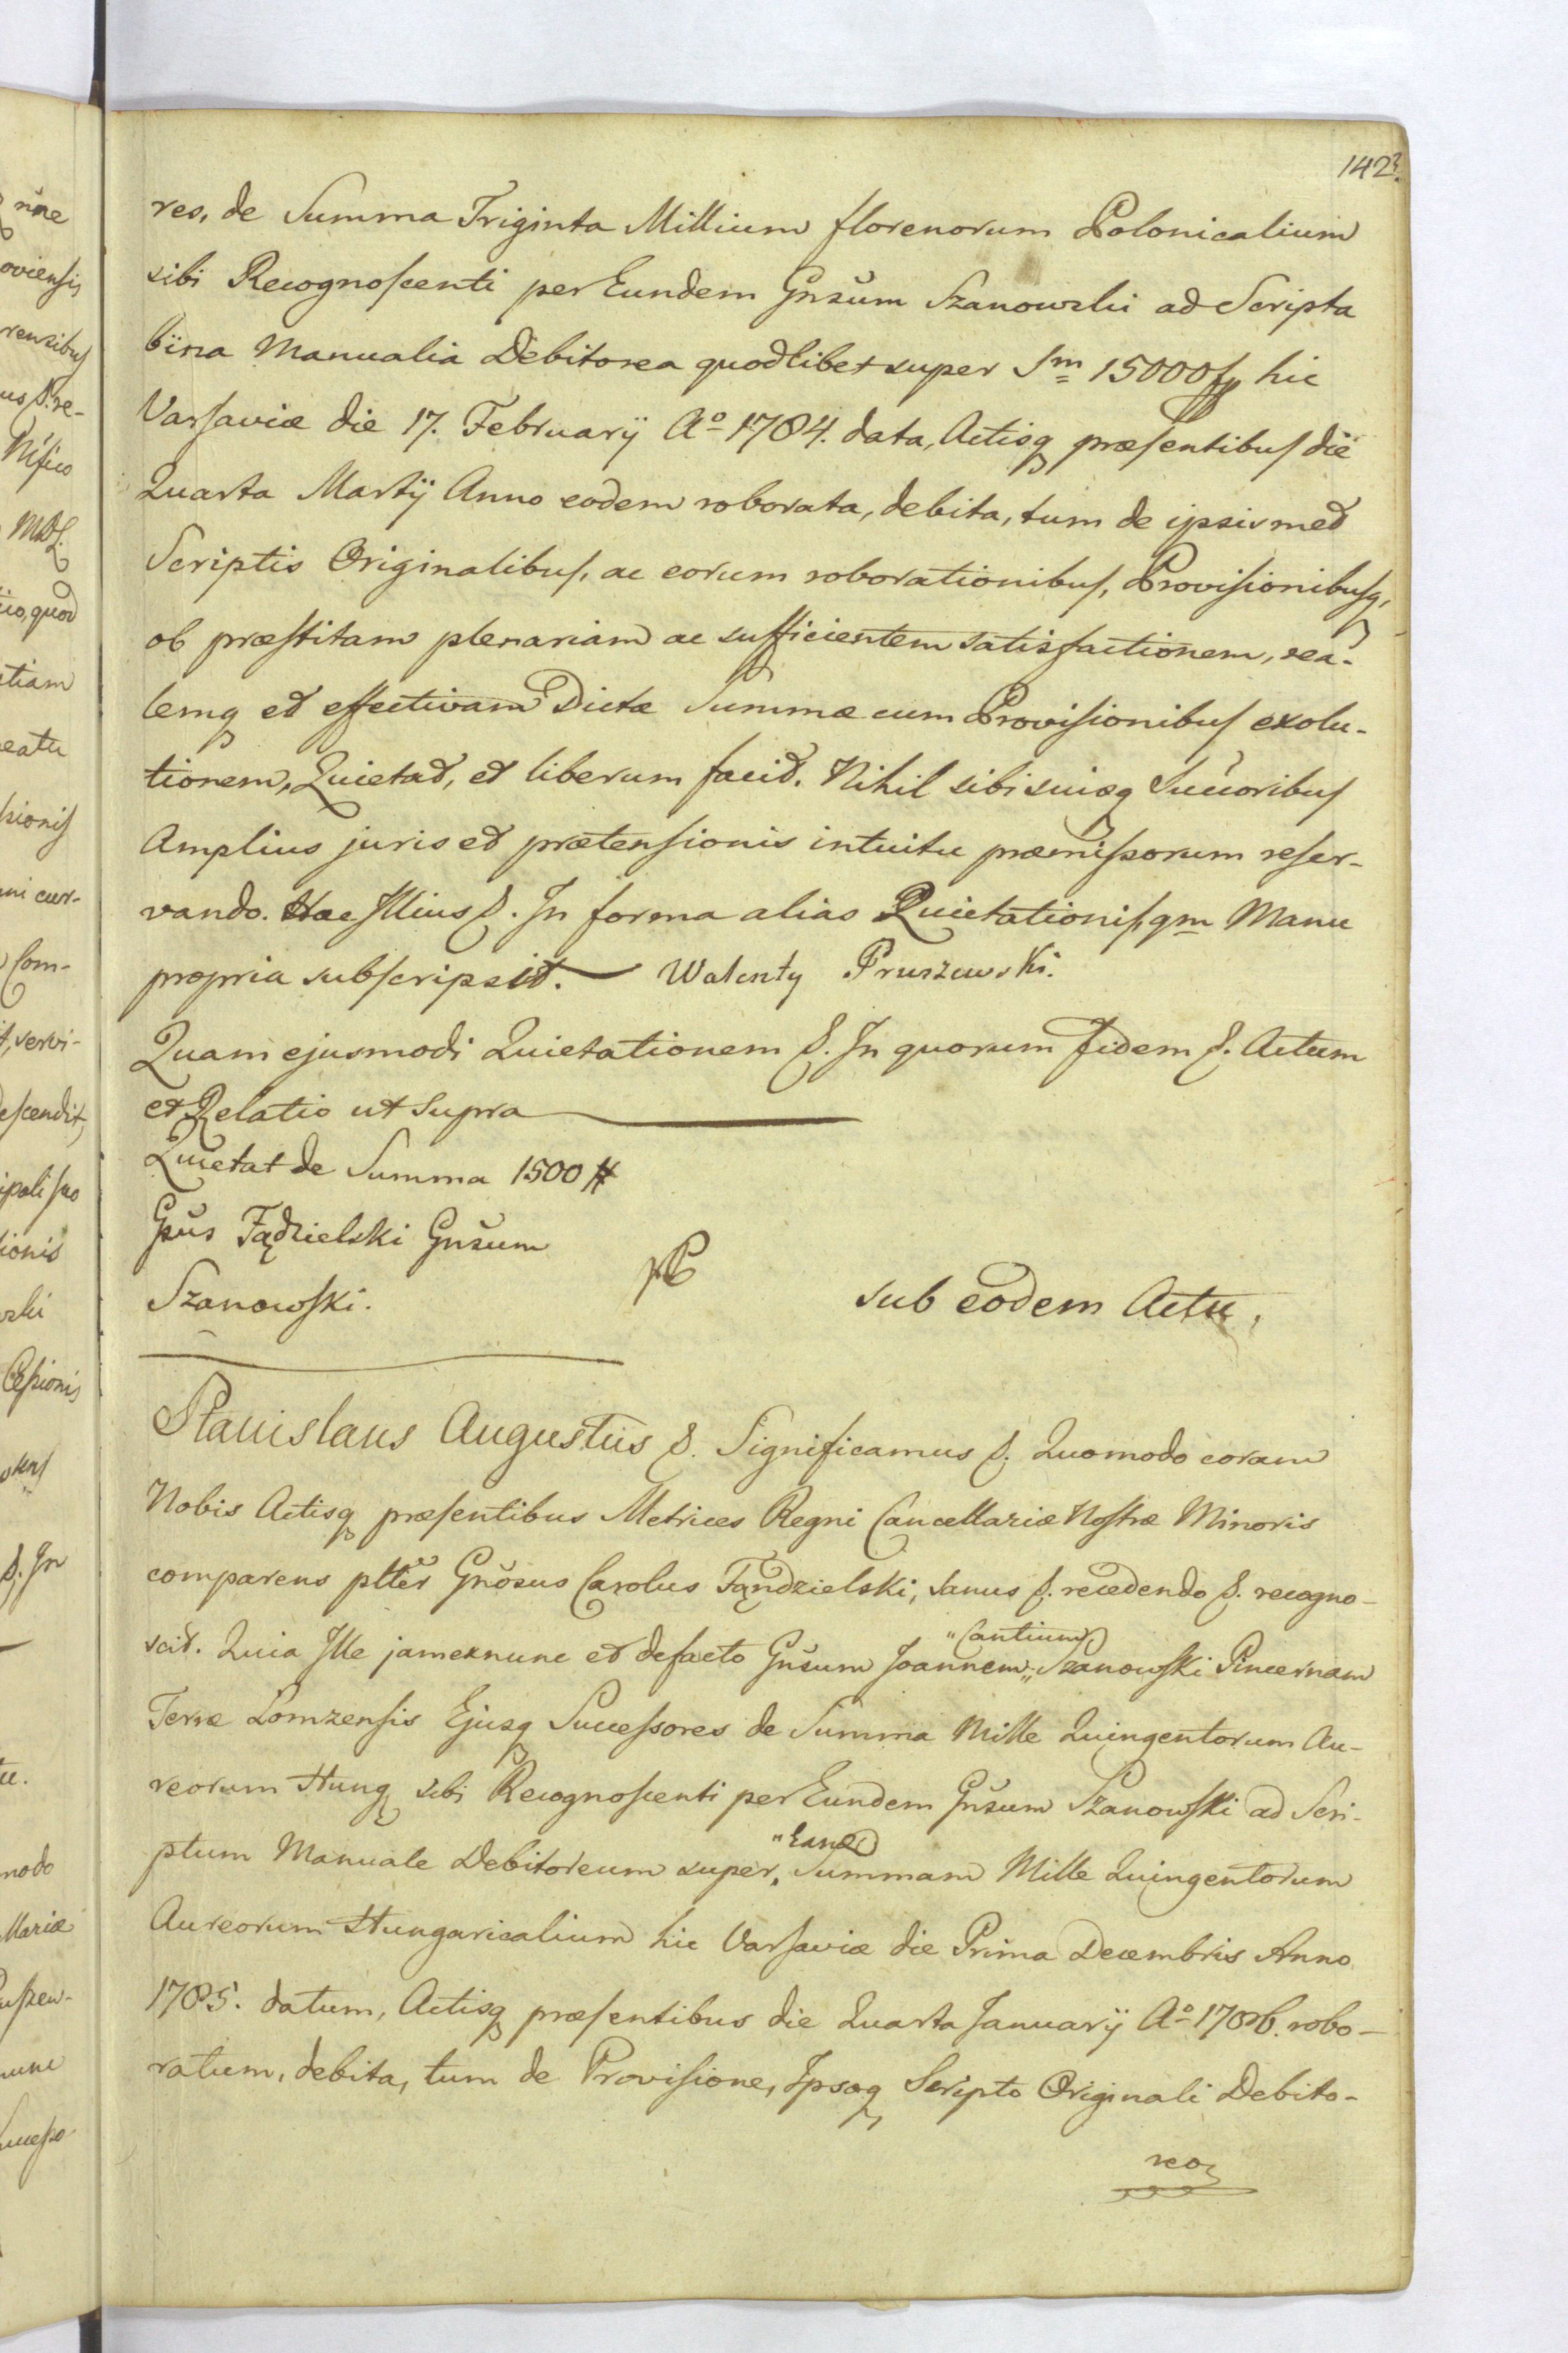 1423.
res, de Summa Triginta Millium florenorum Polonicalium
sibi Recognoscenti per Eundem Gnsum Szanowski ad Scripta
bina Manualia Debitorea quodlibet super Sm 15000 fp hic
Varsaviæ die 17. Februarÿ Aº 1784. data, Actisq præsentibus die
Quarta Martÿ Anno eodem roborata, debita, tum de ipsismet
Scriptis Originalibus, ac eorum roborationibus, Provisionibusq,
ob præstitam plenariam ac sufficientem satisfactionem, rea-
lemq et effectivam Dictæ Summæ cum Provisionibus exolu-
tionem, Quietat, et liberum facit. Nihil sibi suisq Succoribus
Amplius juris et prætensionis intuitu præmissorum reser-
vando. Hac Illius &. In forma alias Quietationis, qm Manu
propria subscripsit. — Walenty Pruszewski.
Quam ejusmodi Quietationem &. In quorum fidem &. Actum
et Relatio ut supra
Quietat de Summa 1500 #
Gsus Fądzielski Gnsum
Szanowski.
sub eodem Actu.
Stanislaus Augustus &. Significamus &. Quomodo coram
Nobis Actisq præsentibus Metrices Regni Cancellariæ Nostræ Minoris
comparens plter Gnosus Carolus Fądzielski, sanus &. recedendo &. recogno-
scit. Quia Ille jam ex nunc et defacto Gnsum Joannem „ Szanowski Pincernam
"Cantium
Terræ Lomzensis Ejusq Successores de Summa Mille Quingentorum Au-
reorum Hung sibi Recognoscenti per Eundem Gnsum Szanowski ad Scri-
ptum Manuale Debitoreum super „ Summam Mille Quingentorum
"Eand
Aureorum Hungaricalium hic Varsaviæ die Prima Decembris Anno
1785. datum, Actisq præsentibus die Quarta Januarÿ Aº 1786. robo-
ratum, debita, tum de Provisione, Ipsoq Scripto Originali Debito-
reo,